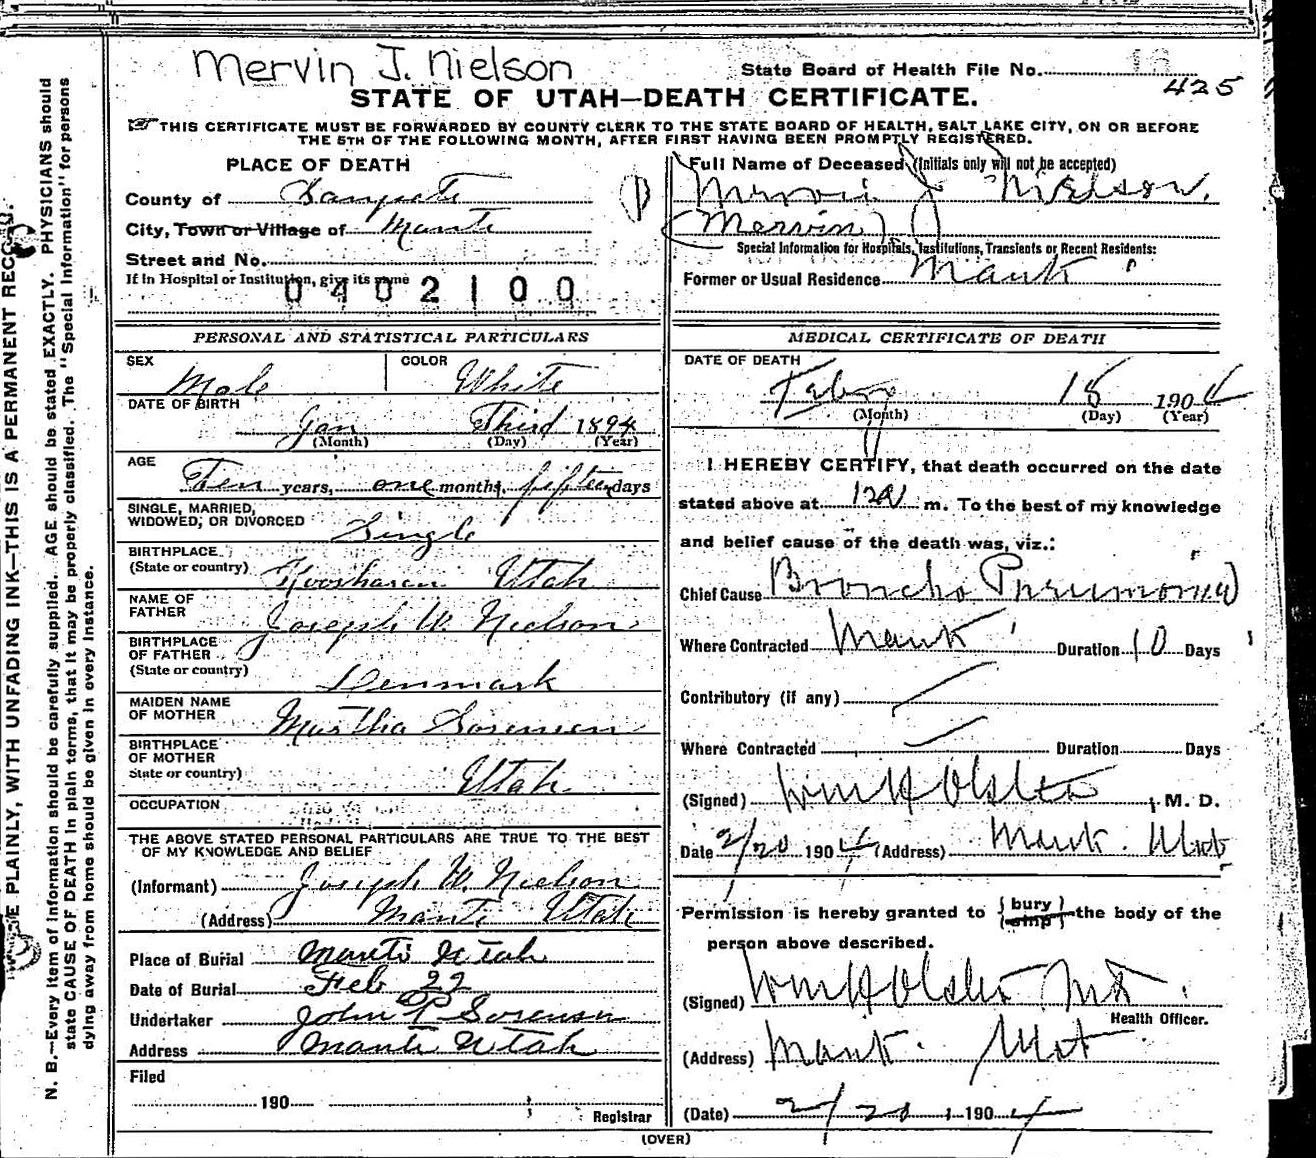 Mervin J. Nielson
State Board of Health File No. 16
425
STATE OF UTAH—DEATH CERTIFICATE.
THIS CERTIFICATE MUST BE FORWARDED BY COUNTY CLERK TO THE STATE BOARD OF HEALTH, SALT LAKE CITY, ON OR BEFORE
THE 5TH OF THE FOLLOWING MONTH, AFTER FIRST HAVING BEEN PROMPTLY REGISTERED.
PLACE OF DEATH
County of Sanpete
City, Town or Village of Manti
Street and No.
If in Hospital or Institution, give its name
0402100
Full Name of Deceased (Initials only will not be accepted)
Mervin J Nielson.
(Mervin)
Special Information for Hospitals, Institutions, Transients or Recent Residents:
Former or Usual Residence Manti
PERSONAL AND STATISTICAL PARTICULARS
SEX Male COLOR White
DATE OF BIRTH
Jan Third 1894
(Month) (Day) (Year)
AGE
Ten years, one months, fifteen days
SINGLE, MARRIED,
WIDOWED, OR DIVORCED Single
BIRTHPLACE
(State or country) Koosharem Utah
NAME OF
FATHER Joseph W. Nielson
BIRTHPLACE
OF FATHER
(State or country) Denmark
MAIDEN NAME
OF MOTHER Martha Sorensen
BIRTHPLACE
OF MOTHER
State or country) Utah
OCCUPATION
THE ABOVE STATED PERSONAL PARTICULARS ARE TRUE TO THE BEST
OF MY KNOWLEDGE AND BELIEF
(Informant) Joseph W. Nielson
(Address) Manti Utah
Place of Burial Manti Utah
Date of Burial Feb 22
Undertaker John P Sorensen
Address Manti Utah
Filed
190
Registrar
MEDICAL CERTIFICATE OF DEATH
DATE OF DEATH
Feby 18 1904
(Month) (Day) (Year)
I HEREBY CERTIFY, that death occurred on the date
stated above at 12a m. To the best of my knowledge
and belief cause of the death was, viz.:
Chief Cause Broncho Pneumonia
Where Contracted Manti Duration 10 Days
Contributory (if any)
Where Contracted Duration Days
(Signed) Wm H Olsten, M. D.
Date 2/20 1904 (Address) Manti. Utah
Permission is hereby granted to {bury ship} the body of the
person above described.
(Signed) Wm H Olsten MD
Health Officer.
(Address) Manti Utah
(Date) 2/20 1904
(OVER)
N. B.—Every item of information should be carefully supplied. AGE should be stated EXACTLY. PHYSICIANS should
state CAUSE OF DEATH in plain terms, that it may be properly classified. The "Special Information" for persons
dying away from home should be given in every instance.
PLAINLY, WITH UNFADING INK—THIS IS A PERMANENT